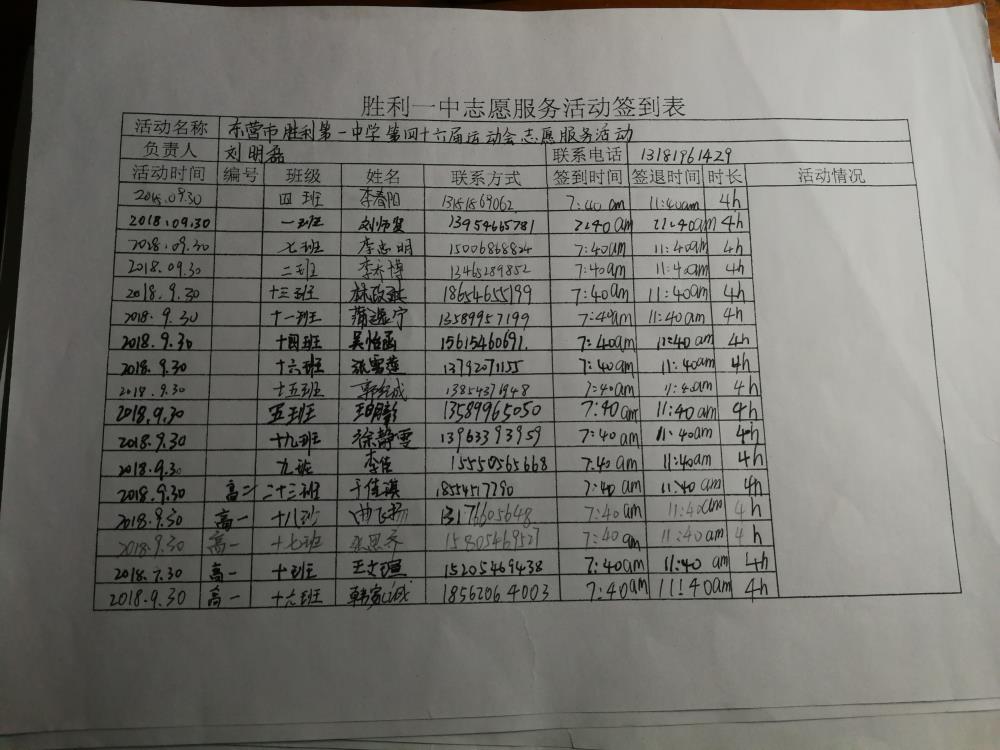 胜利一中志愿服务活动签到表
活动名称 东营市胜利第一中学第四十六届运动会志愿服务活动
负责人 刘明磊 联系电话 13181961429
活动时间 编号 班级 姓名 联系方式 签到时间 签退时间 时长 活动情况
2018.09.30 四班 李春阳 13181869062 7:40am 11:40am 4h
2018.09.30 一班 刘师贤 13954665781 7:40am 11:40am 4h
2018.09.30 七班 李志明 15006868824 7:40am 11:40am 4h
2018.09.30 二班 李乔博 13465289852 7:40am 11:40am 4h
2018.9.30 十三班 林政祺 18654655199 7:40am 11:40am 4h
2018.9.30 十一班 蒲逸宁 13589957199 7:40am 11:40am 4h
2018.9.30 十四班 吴怡函 15615460691. 7:40am 11:40am 4h
2018.9.30 十六班 张雪莲 13792071155 7:40am 11:40am 4h
2018.9.30 十五班 13854371948 7:40am 11:40am 4h
2018.9.30 五班 13589965050 7:40am 11:40am 4h
2018.9.30 十九班 徐静雯 13963393959 7:40am 11:40am 4h
2018.9.30 九班 李佳 15550565668 7:40am 11:40am 4h
2018.9.30 高二 二十三班 于佳淇 18554577790 7:40am 11:40am 4h
2018.9.30 高一 十八班 13176605648 7:40am 11:40am 4h
2018.9.30 高一 十七班 张恩乔 15805469527 7:40am 11:40am 4h
2018.9.30 高一 十班 15205469438 7:40am 11:40am 4h
2018.9.30 高一 十六班 18562064003 7:40am 11:40am 4h